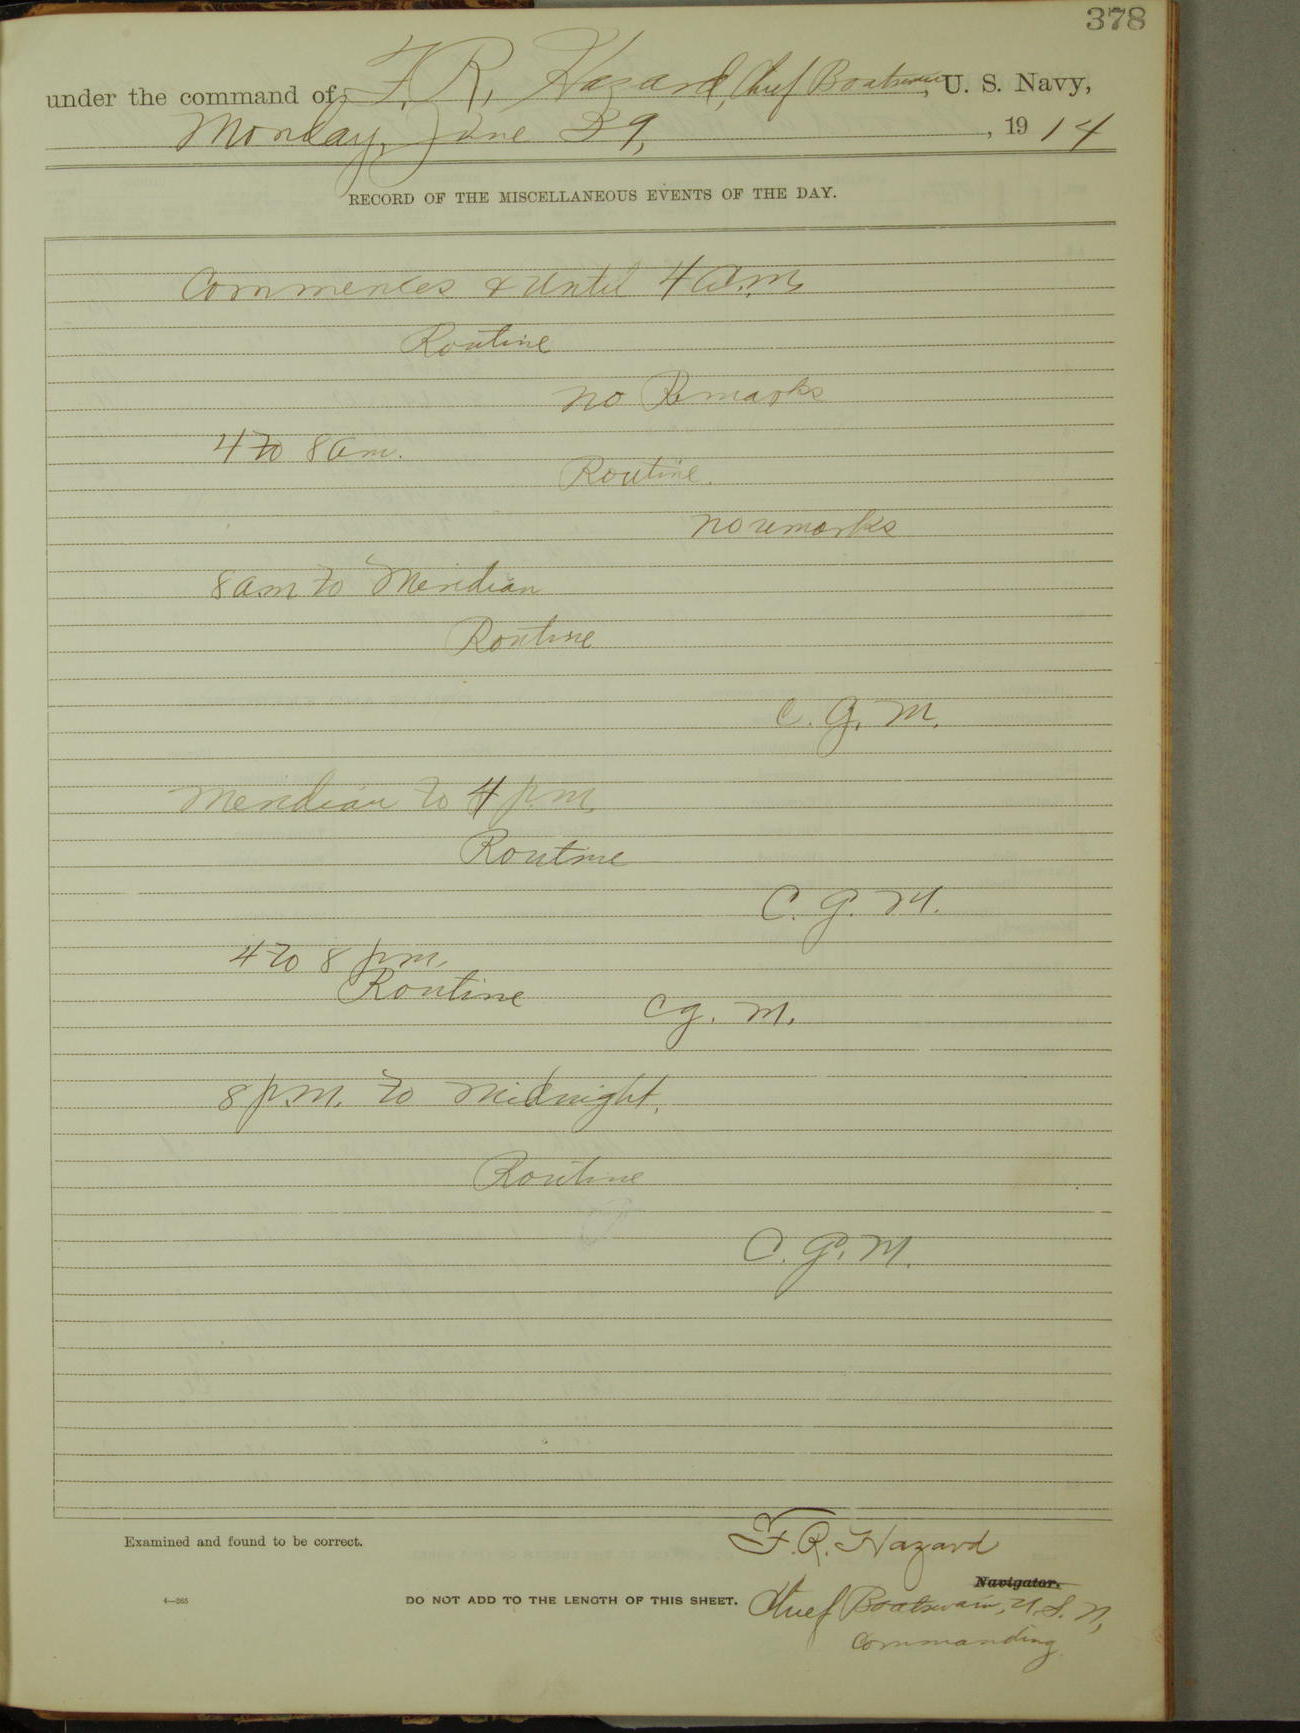 378
under the command of F. R. Hazard, Chief Boatswain, U. S. Navy,
Monday, June 29, , 1914
RECORD OF THE MISCELLANEOUS EVENTS OF THE DAY.
Commences & until 4 a.m.
Routine
no Remarks
4 to 8 am.
Routine.
no remarks
8 am to Meridian
Routine
C. G. M.
Meridian to 4 p.m.
Routine
C. G. M.
4 to 8 pm.
Routine C G. M.
8 p.m. to Midnight.
Routine
C. G. M.
Examined and found to be correct.
F. R. Hazard
Navigator.
4—265 DO NOT ADD TO THE LENGTH OF THIS SHEET. Chief Boatswain, U. S. N,
Commanding